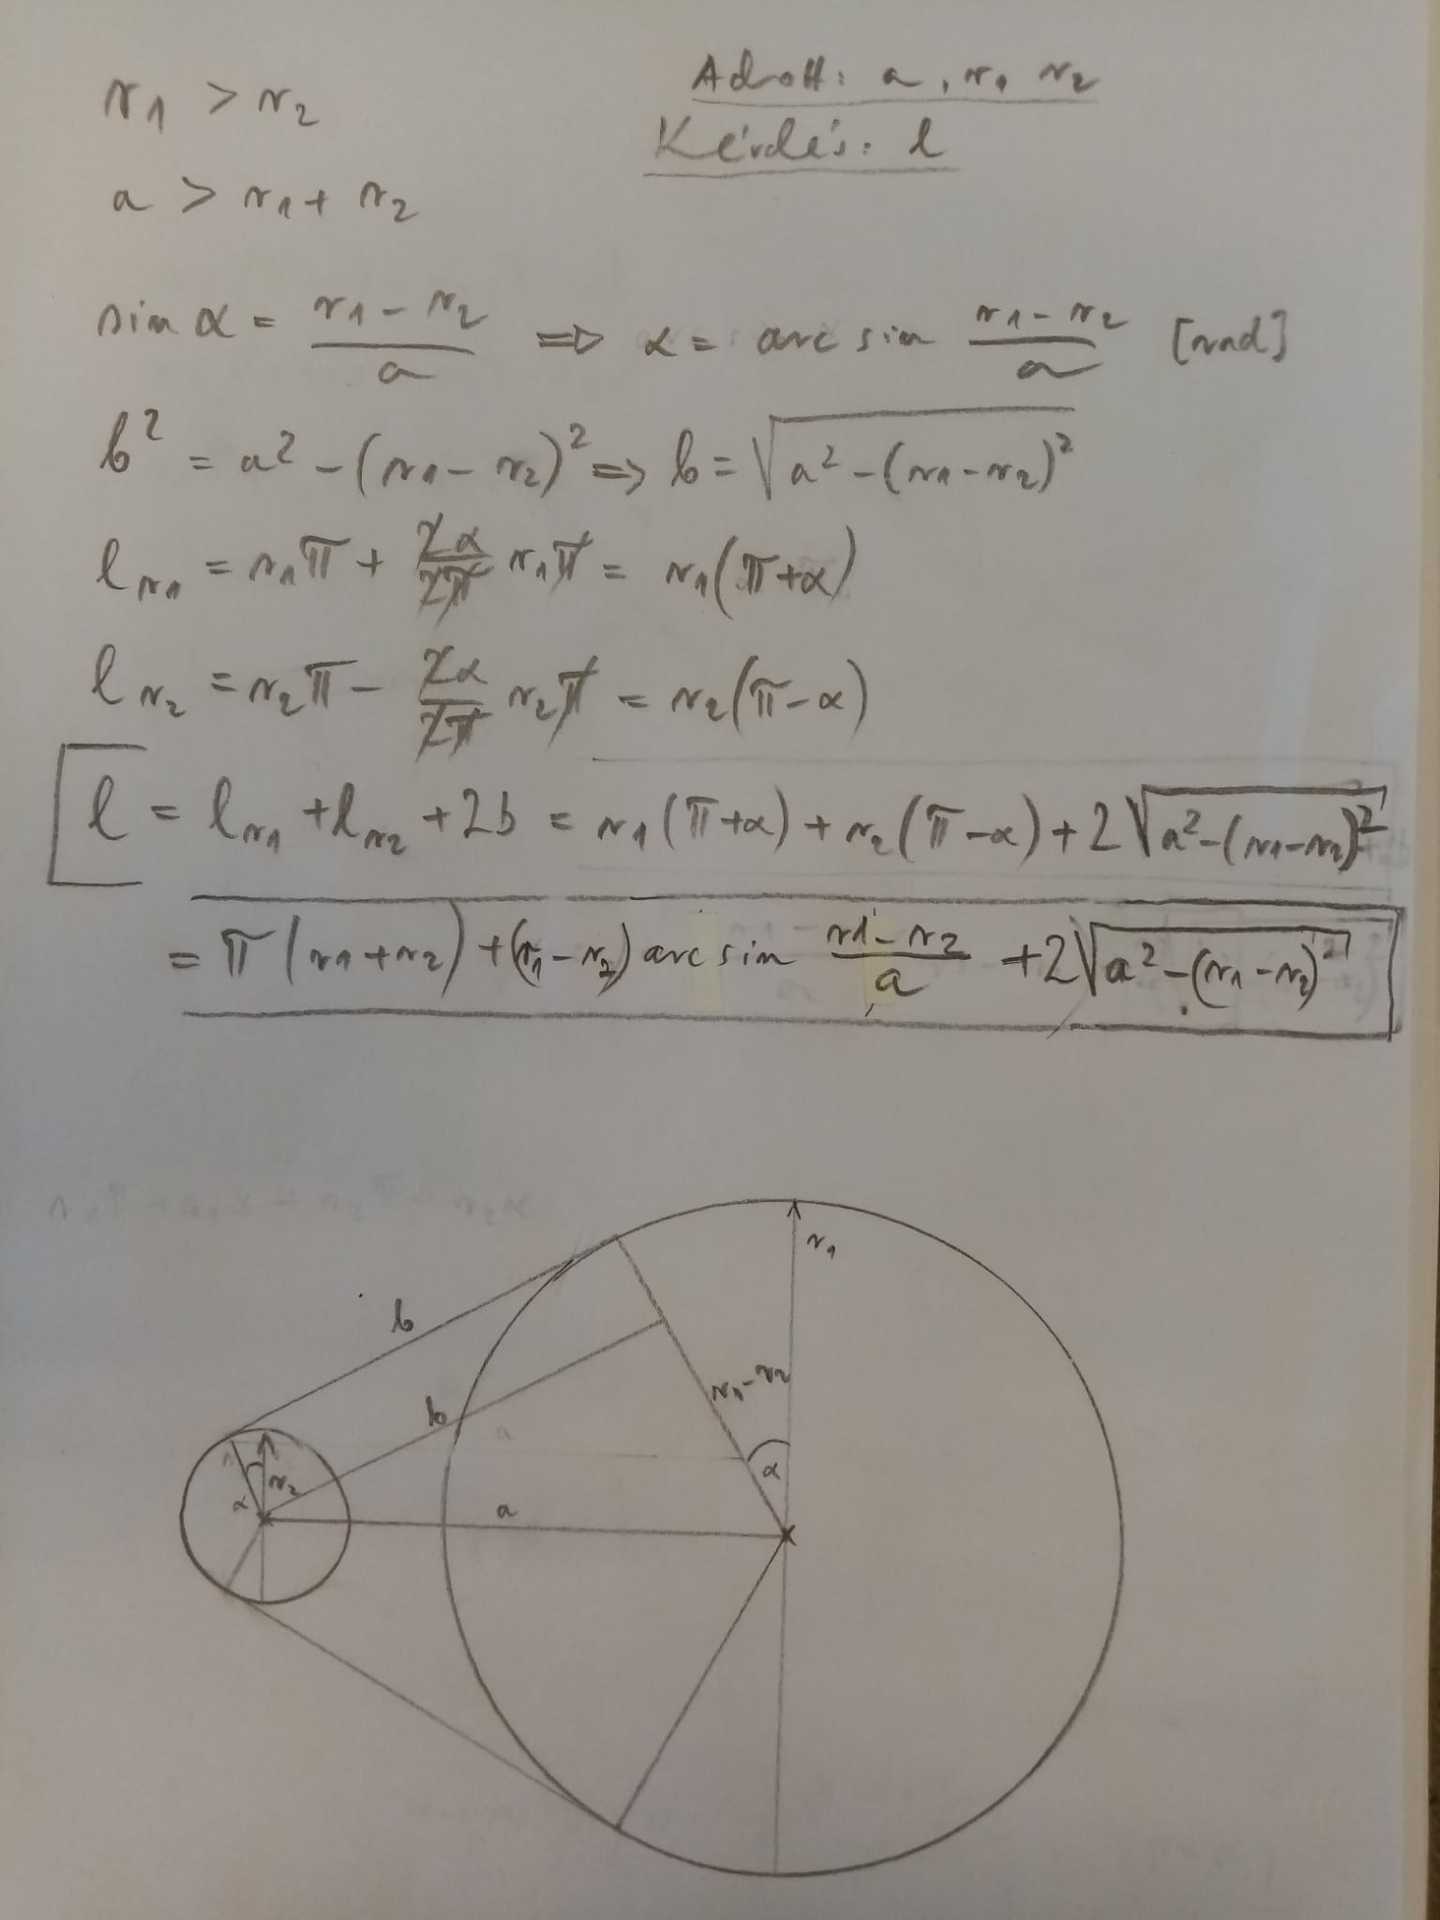 r1 > r2
Adott: a, r1 r2
Kérdés: l
a > r1 + r2
sin α = (r1 - r2)/a ⇒ α = arc sin (r1 - r2)/a [rad]
b² = a² - (r1 - r2)² ⇒ b = √(a² - (r1 - r2)²)
l_r1 = r1π + 2α/2π r1π = r1(π+α)
l_r2 = r2π - 2α/2π r2π = r2(π-α)
l = l_r1 + l_r2 + 2b = r1(π+α) + r2(π-α) + 2√(a² - (r1-r2)²)
= π(r1+r2) + (r1-r2) arc sin (r1-r2)/a + 2√(a² - (r1-r2)²)
r1
b
r1-r2
b
α
r2
α
a